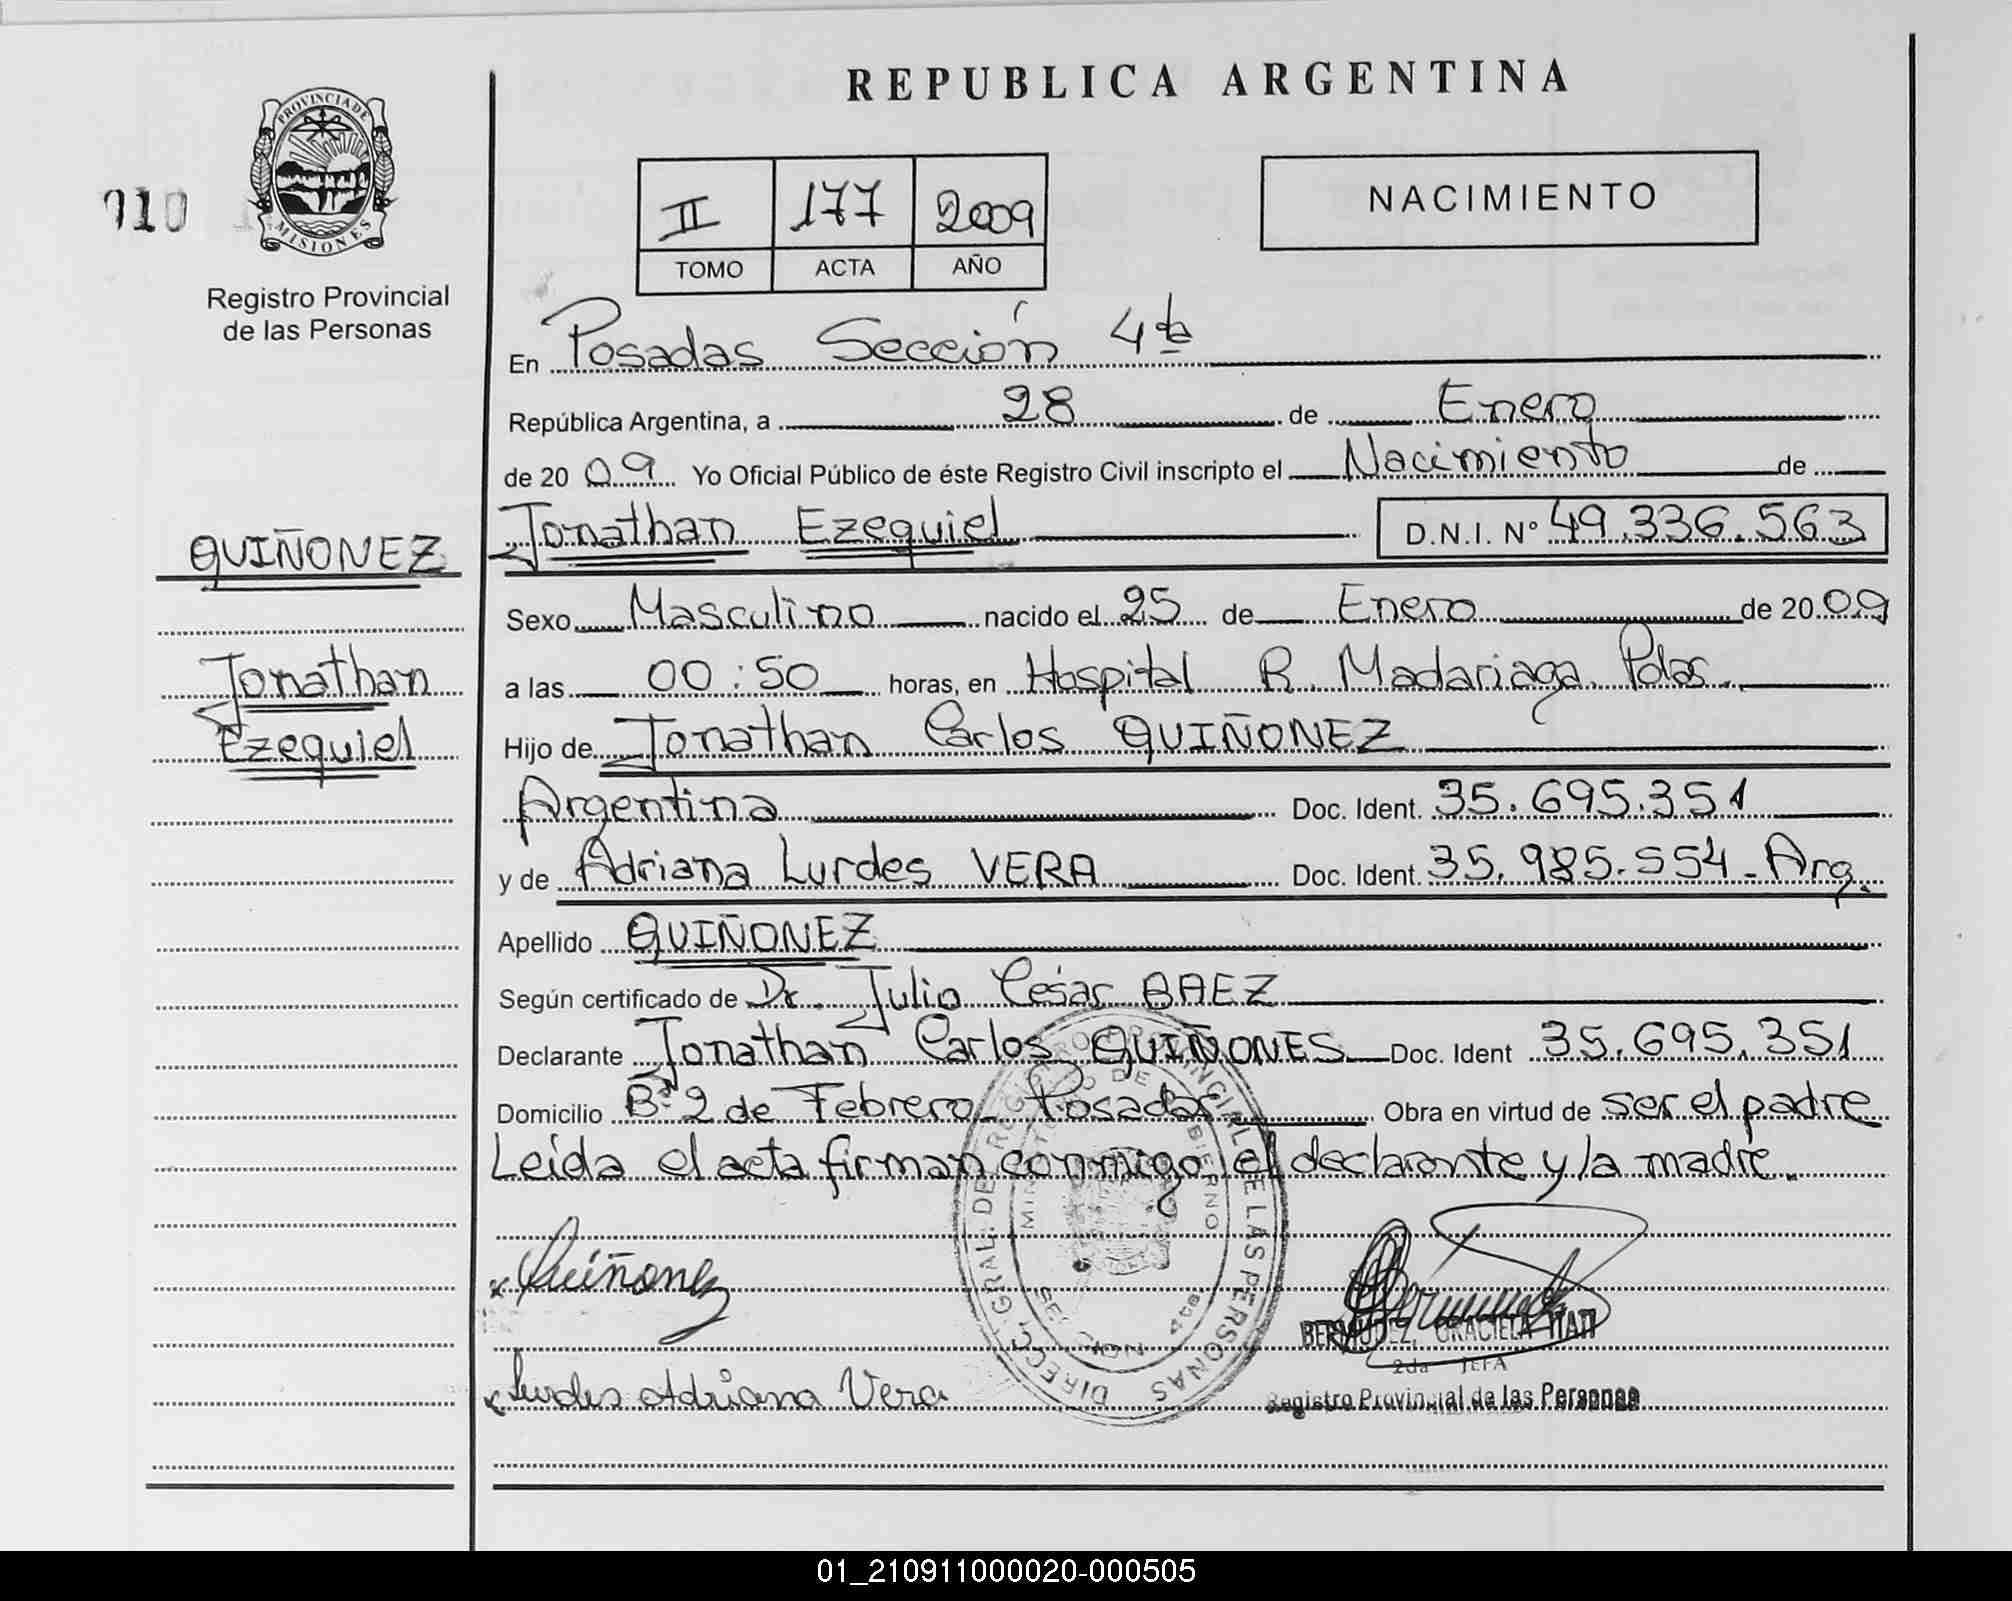 REPUBLICA ARGENTINA
PROVINCIA DE MISIONES
010
Registro Provincial
de las Personas
II 177 2009
TOMO ACTA AÑO
NACIMIENTO
En Posadas Sección 4ta
República Argentina, a 28 de Enero
de 2009 Yo Oficial Público de éste Registro Civil inscripto el Nacimiento de
QUIÑONEZ
Jonathan
Ezequiel
Jonathan Ezequiel D.N.I. Nº 49.336.563
Sexo Masculino nacido el 25 de Enero de 2009
a las 00:50 horas, en Hospital R. Madariaga. Pdas.
Hijo de Jonathan Carlos QUIÑONEZ
Argentina Doc. Ident. 35.695.351
y de Adriana Lurdes VERA Doc. Ident. 35.985.554 - Arg.
Apellido QUIÑONEZ
Según certificado de Dr. Julio César BAEZ
Declarante Jonathan Carlos QUIÑONES Doc. Ident 35.695.351
Domicilio Bº 2 de Febrero - Posadas Obra en virtud de ser el padre
Leída el acta firman conmigo el declarante y la madre.
x Quiñonez
x Lurdes Adriana Vera
DIRECC. GRAL. DE REGISTRO PROVINCIAL DE LAS PERSONAS
MINISTERIO DE GOBIERNO
SECCION 4ta
BERMUDEZ, GRACIELA ITATI
2da JEFA
Registro Provincial de las Personas
01_210911000020-000505